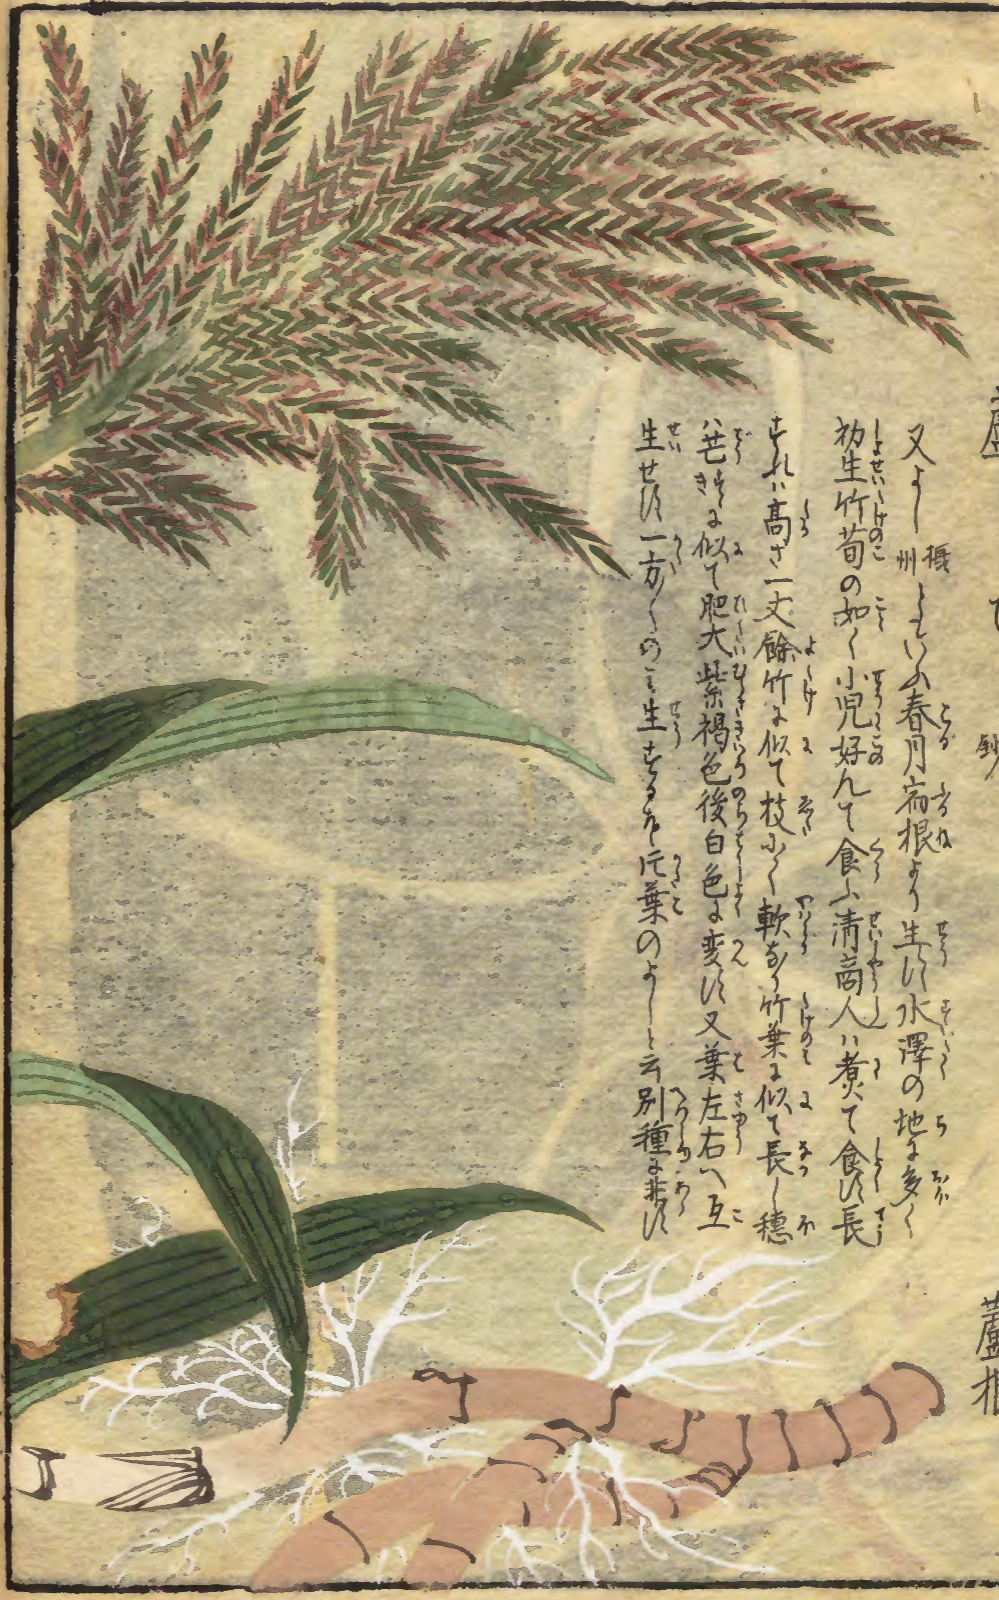 蘆
鈔
蘆根
又よし摂州ともいふ春月宿根より生ず水澤の地に多く
初生竹荀の如く小児好んて食ふ清商人ハ煮て食す長
すれハ高さ一丈餘竹に似て枝小く軟なり竹葉に似て長し穂
ハ芒すきに似て肥大紫褐色後白色に変ず又葉左右へ互
生せず一方への三生するを片葉のよしと云別種に非ず